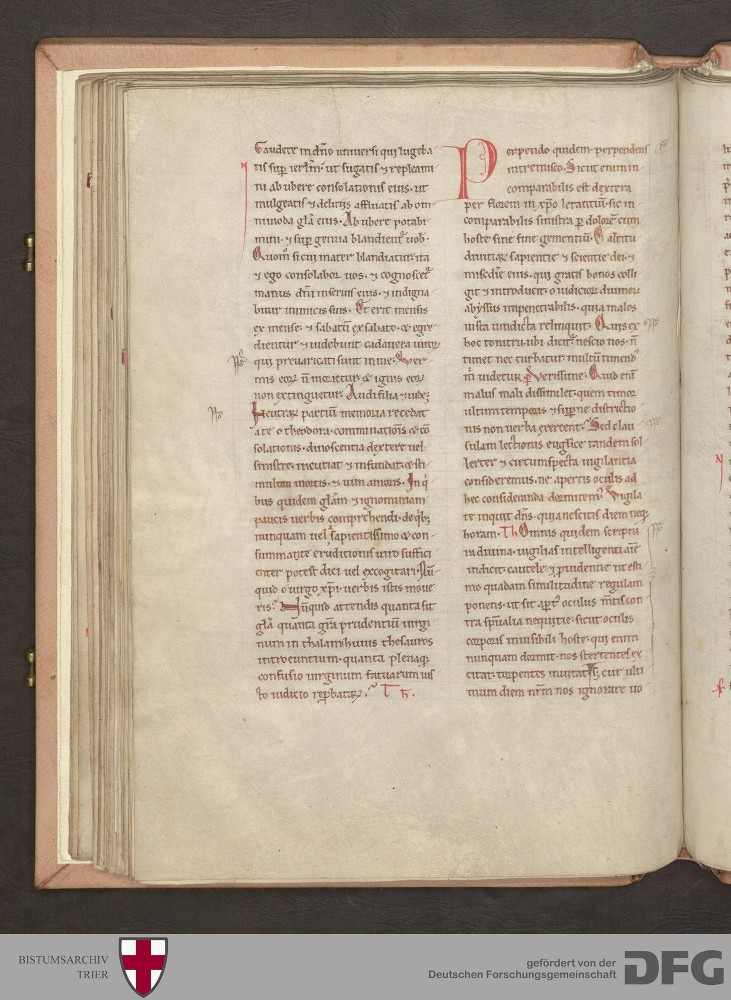 Gaudete in dño universi qui lugeba
tis sup ierłm ut sugatis ⁊ repleami
ni ab ubere consolationis eius. ut
mulgeatis ⁊ delitiis affluatis ab om
nimoda gła eius. Ab ubere potabi
mini. ⁊ sup genua blandient uob.
Quom sicui mater blandiatur ita
⁊ ego consolabor uos. ⁊ cognoscet
manus dñi in seruis eius. ⁊ indigna
bitur inimicis suis. Et erit mensis
ex mense. ⁊ sabatū ex sabato. ⁊ egre
dientur ⁊ uidebunt cadauera uiroꝝ
qui preuaricati sunt in me. Ver
mis eoꝝ ñ morietur ⁊ ignis eoꝝ
non extinguetur. Audi filia ⁊ uide.
Neutraꝝ partiū memoria recedat
a te o theodora. comminationis ⁊ cō
solationis. dinoscentia dextere uel
sinistre. incutiat ⁊ infundat. ⁊ sti
mulum mortis. ⁊ uim amoris. In q
bus quidem głam ⁊ ignominiam
paucis uerbis comprehendi. de qbꝫ
nunquam uel sapientissimo ⁊ con
summante eruditionis uiro suffici
enter potest dici uel excogitari. Nū
quid o uirgo xpi uerbis istis moue
ris? Nūquid attendis quanta sit
gła quanta gra prudentiū uirgi
num in thalamū huius thesauros
introeuntium. quanta plenaqꝫ
confusio uirginum fatuarum ius
to iudicio reprobataꝝ. Th.
Perpendo quidem. perpendens
intremisco. Sicut enim in
comparabilis est dextera
per florem in xpo letantiū. sic in
comparabilis sinistra p dolorem cum
hoste sine fine gementiū. O altitu
diuitiaꝝ sapientie ⁊ scientie dei. ⁊
miscdie eius. qui gratis bonos colli
git ⁊ introducit. o iudicioꝝ diuinoꝝ
abyssus impenetrabilis. quia malos
iusta uindicta relinquit. Quis ex
hoc tonitru ubi dicitur nescio uos. ñ
timet nec turbatur. multū timend
m uidetur. P Verissime. Quid eni
malus mali dissimilet. quem timor
ultimi temporis ⁊ supne districtio
nis non uerba exercent. Sed clau
sulam lectionis euglice tandem sol
lerter ⁊ circumspecta uigilantia
consideremus. ne apertis oculis ad
hec consideranda dormitem. Vigila
te inquit dñs. quia nescitis diem neqꝫ
horam. Th Omnis quidem scriptu
ra diuina. uigilias intelligenti aīe
indicit. cautele ⁊ prudentie ut esti
mo quadam similitudine regulam
ponens. ut sit apt oculus mentis con
tra spūalia nequitie. sicut oculis
corporis inuisibili hoste. qui enim
nunquam dormit. nos stertentes ex
citat. torpentes inuitat. Sꝫ cur ulti
mum diem nrm nos ignorare uo
BISTUMSARCHIV
TRIER
gefördert von der
Deutschen Forschungsgemeinschaft
DFG